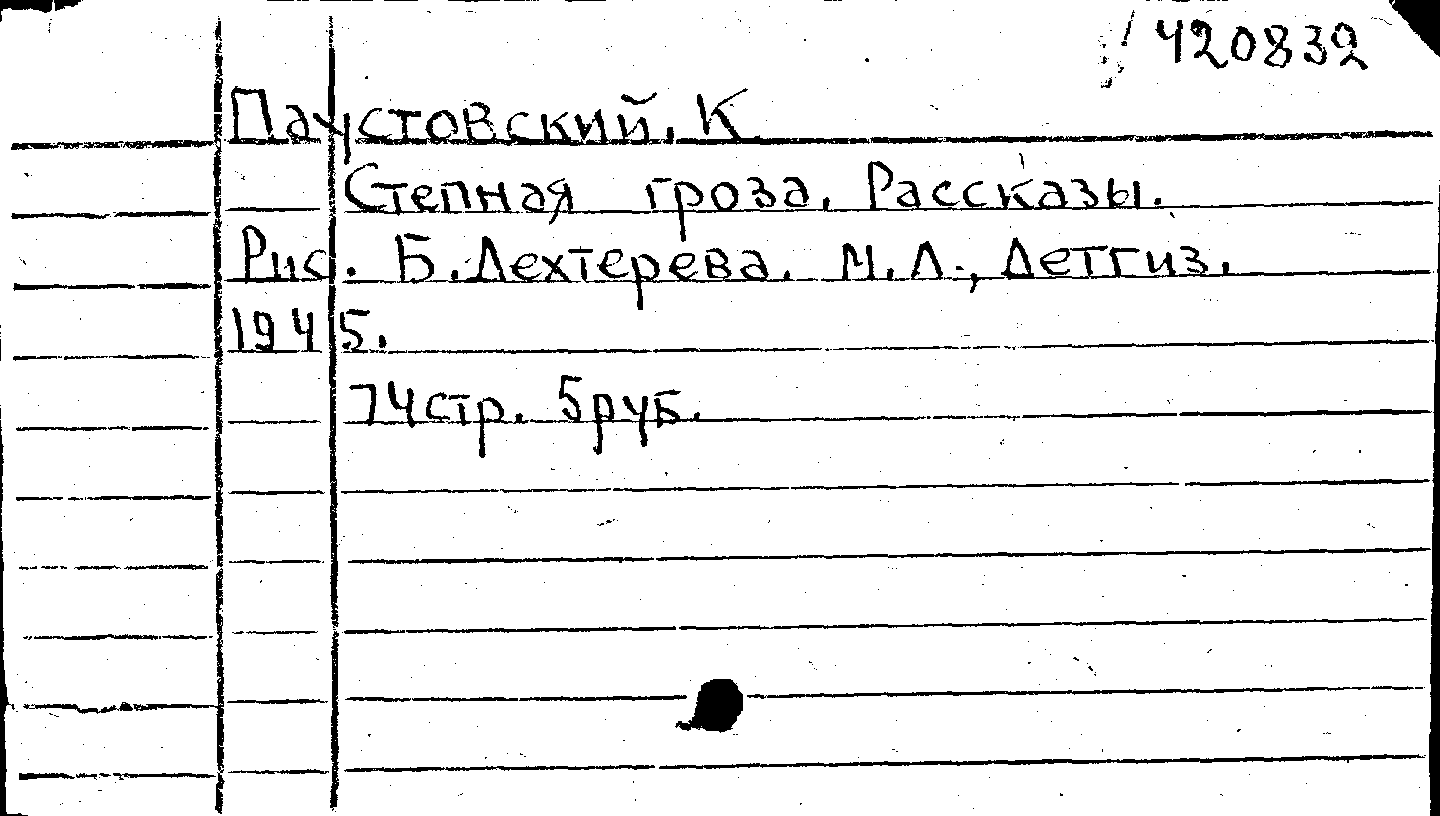 420832
Паустовский, К
Степная гроза. Рассказы.
Рис. Б. Дехтерева. М.Л., Детгиз.
1945.
74стр. 5руб.